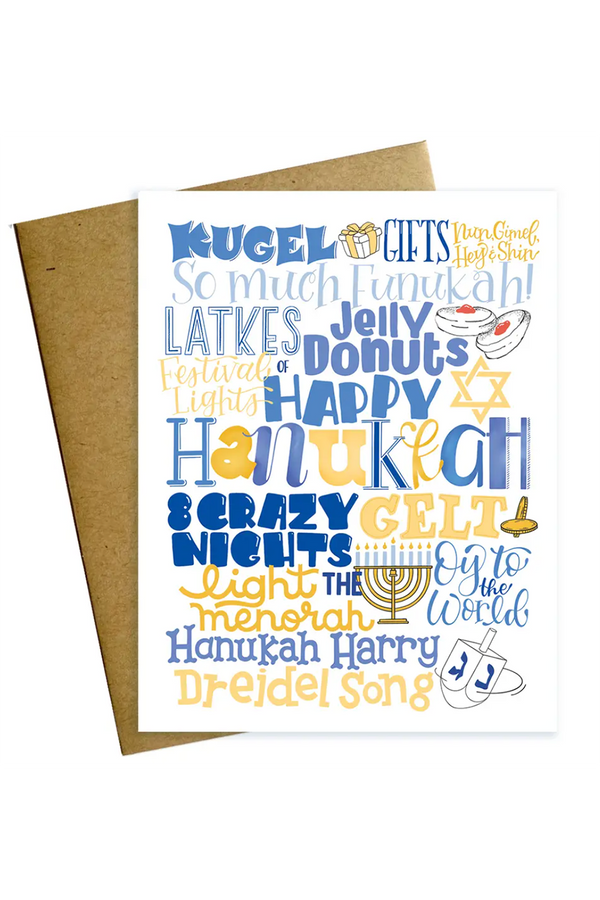 KUGEL GIFTS Nun, Gimel, Hey & Shin
So much Funukah!
LATKES Jelly Donuts
Festival OF Lights
HAPPY
Hanukkah
8 CRAZY NIGHTS GELT
light THE menorah
Oy to the World
Hanukah Harry
Dreidel Song
נ ג